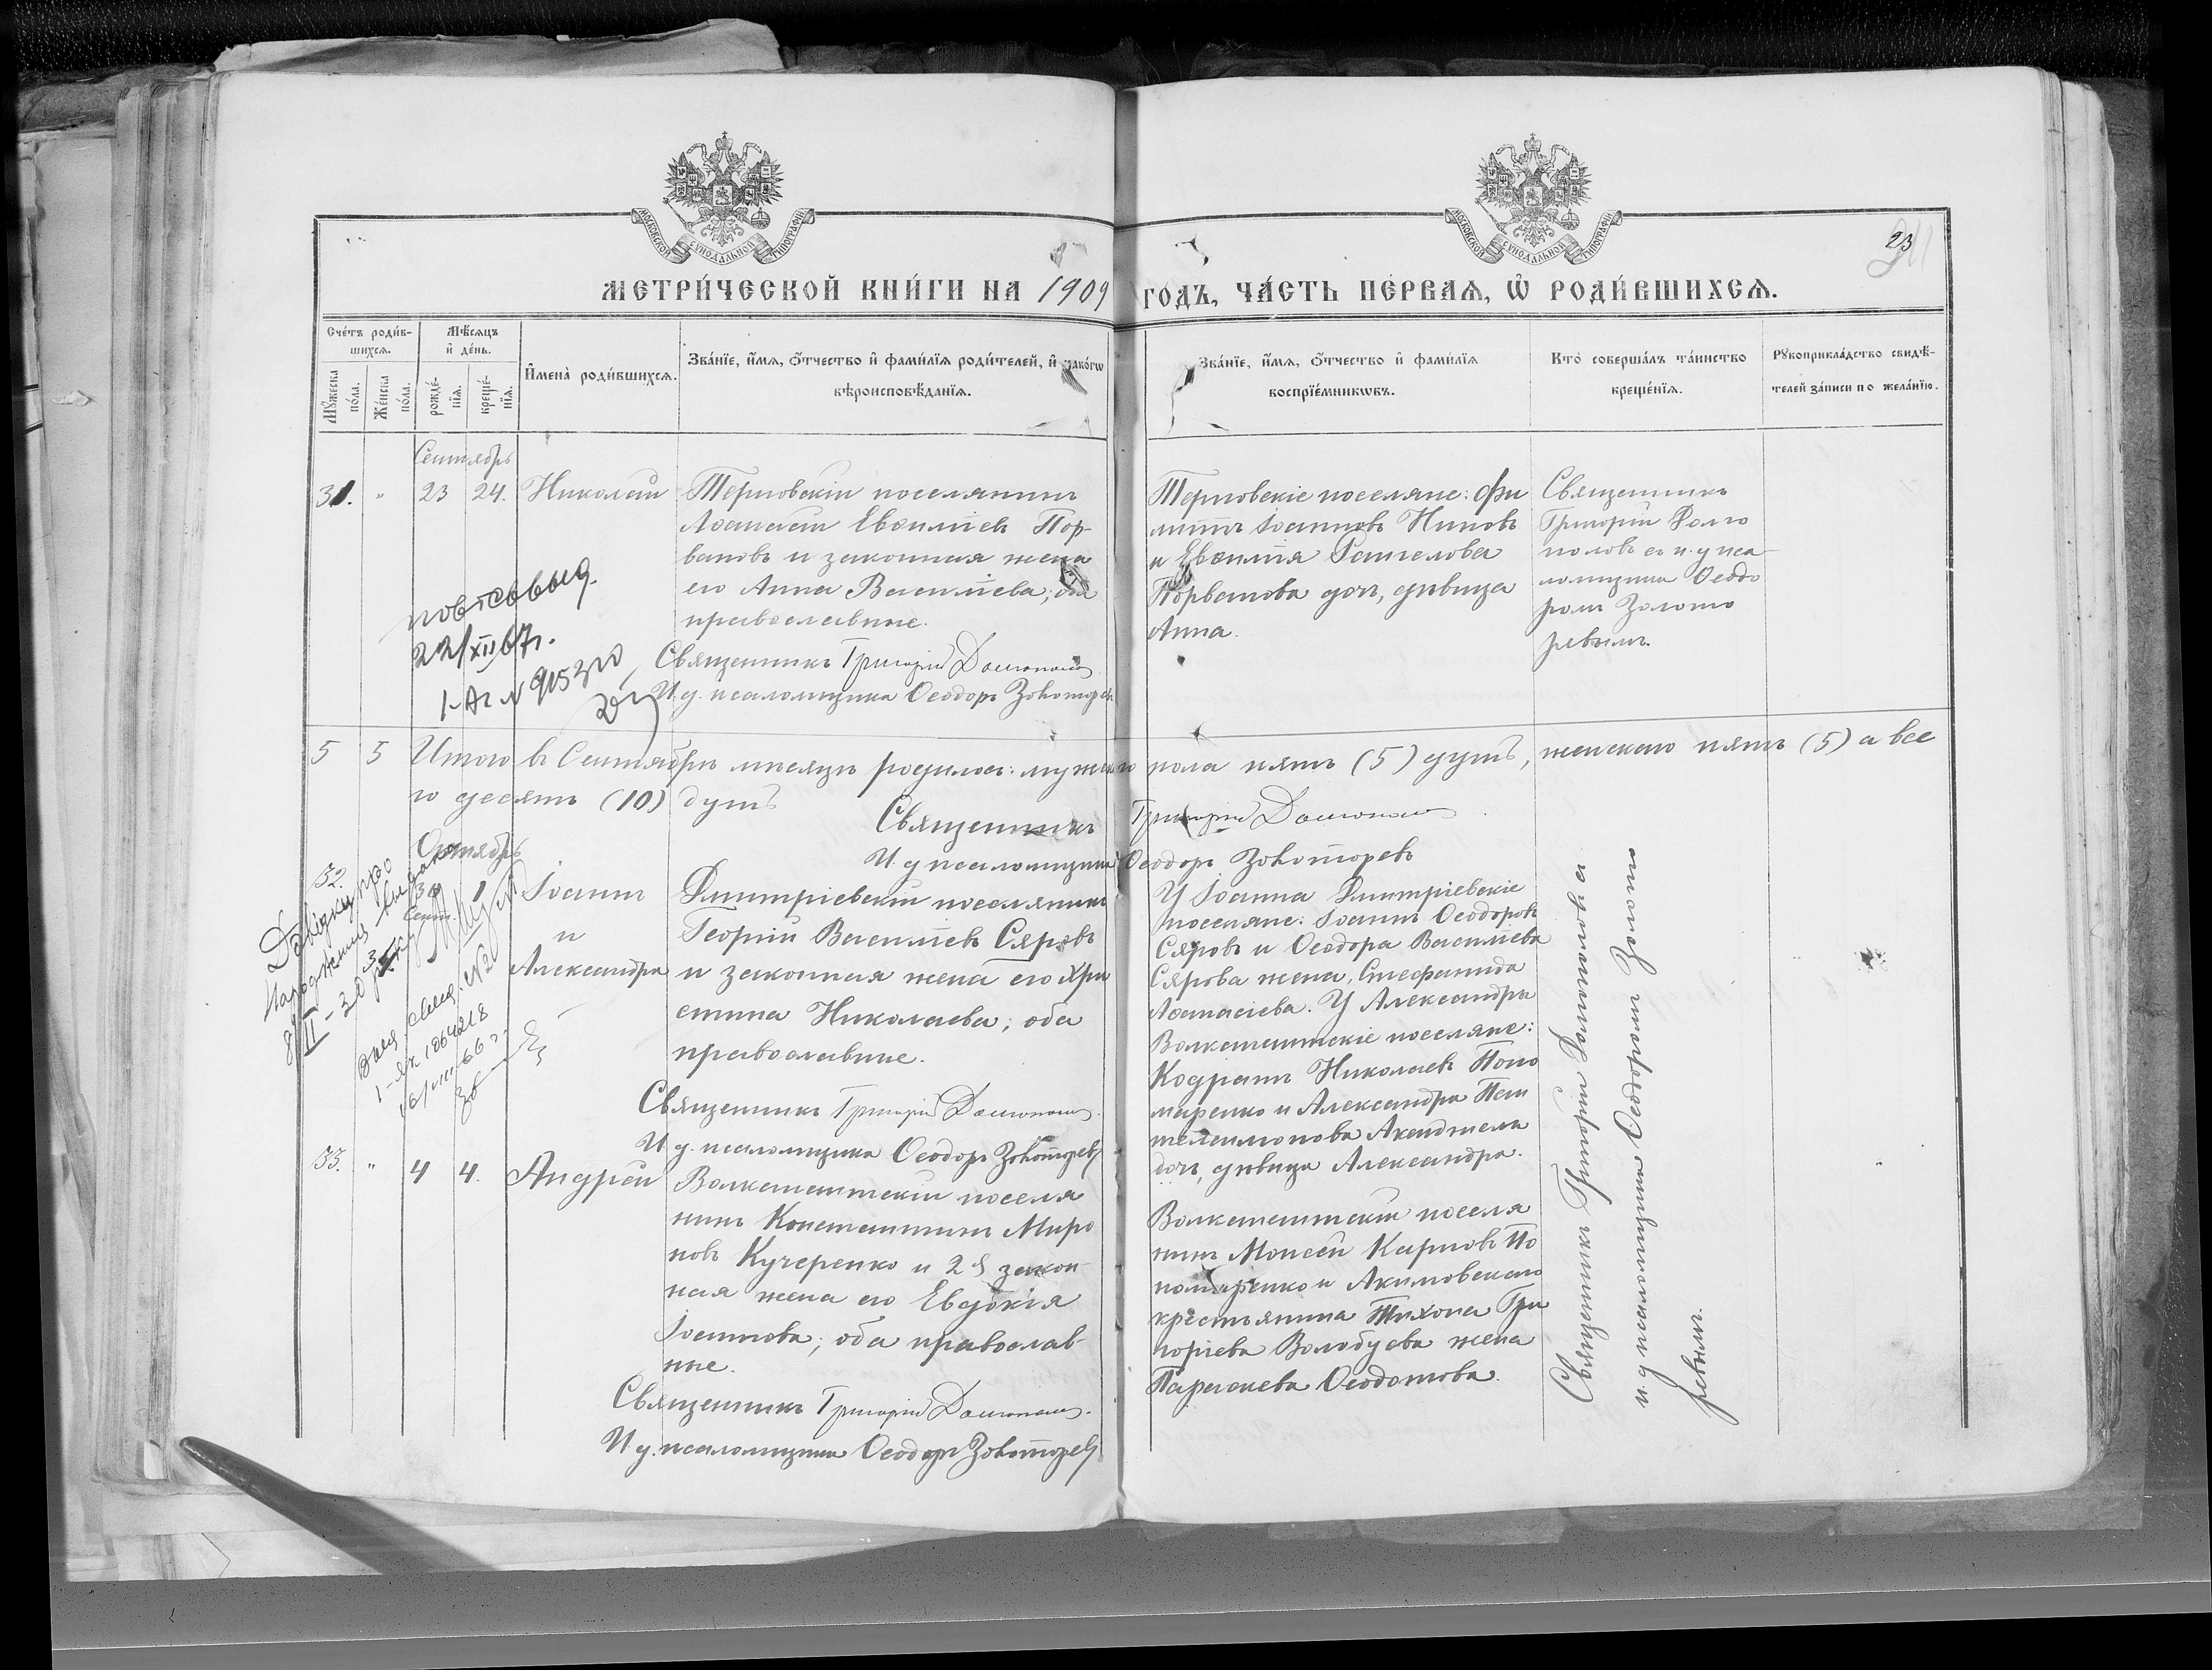 МОСКОВСКОЙ СѴНОДАЛЬНОЙ ТИПОГРАФІИ
МОСКОВСКОЙ СѴНОДАЛЬНОЙ ТИПОГРАФІИ
23
МЕТРИ́ЧЕСКОЙ КНИ́ГИ НА 1909 ГОДЪ, ЧА́СТЬ ПЕ́РВАѦ, Ѡ҆ РОДИ́ВШИХСѦ.
Сче́тъ роди́в-
шихсѧ.
Мꙋ́жеска по́ла.
Же́нска по́ла.
Мѣ́сѧцъ
и҆ де́нь.
рожде́-
нїѧ.
креще́-
нїѧ.
И҆мена̀ роди́вшихсѧ.
Зва́нїе, и҆́мѧ, ѻ҆́тчество и҆ фами́лїѧ роди́телей, и҆ како́гѡ
вѣроисповѣ́данїѧ.
Зва́нїе, и҆́мѧ, ѻ҆́тчество и҆ фами́лїѧ
воспрїе́мникѡвъ.
Кто̀ соверша́лъ та́инство
креще́нїѧ.
Рꙋкоприкла́дство свидѣ́-
телей за́писи по жела́нїю.
Сентябрь
31. " 23 24. Николай
Терновскій поселянинъ
Аѳанасій Евѳиміевъ Пор-
вановъ и законная жена
его Анна Васильева; оба
православные.
Священникъ Григорій Долгополовъ
И. д. псаломщика Ѳеодоръ Золоторевъ
Терновскіе поселяне: Фи
липпъ Іоанновъ Ниновъ
и Евѳимія Гангелова
Порванова дочь, дѣвица
Анна.
Священникъ
Григорій Долго
половъ съ и. д. пса
ломщика Ѳеодо
ромъ Золото
ревымъ.
повт св выд.
22/XII 67г.
5 5 Итого въ Сентябрѣ мѣсяцѣ родилось: мужского пола пять (5) душъ, женскаго пять (5) а все
го десять (10) душъ
Священникъ Григорій Долгополовъ
И. д. псаломщика Ѳеодоръ Золоторевъ
Октябрь
32. 30 Сент. 1 Іоаннъ
и
Александра
Дмитріевскій поселянинъ
Георгій Васильевъ Сяровъ
и законная жена его Хри
стина Николаева; оба
православные.
Священникъ Григорій Долгополовъ
И. д. псаломщика Ѳеодоръ Золоторевъ
У Іоанна Дмитріевскіе
поселяне: Іоаннъ Ѳеодоровъ
Сяровъ и Ѳеодора Васильева
Сярова жена, Стефанида
Аѳанасіева. У Александры
Волканештскіе поселяне:
Кодратъ Николаевъ Поно
маренко и Александра Пан
телеимонова
дочь, дѣвица Александра.
Довідку про
народження
8/II-30
Выд. свид.
33. " 4 4. Андрей
Волканештскій поселя
нинъ Константинъ Миро
новъ Кучеренко и 2я закон
ная жена его Евдокія
Іоаннова; оба православ-
ные.
Священникъ Григорій Долгополовъ
И. д. псаломщика Ѳеодоръ Золоторевъ
Волканештскій поселя
нинъ Моисей Карповъ По
номаренко и Акимовскаго
крестьянина Тихона Гри
горіева Волобуева жена
Параскева Ѳеодотова.
Священникъ Григорій Долгополовъ съ
и. д. псаломщика Ѳеодоромъ Золото
ревымъ.